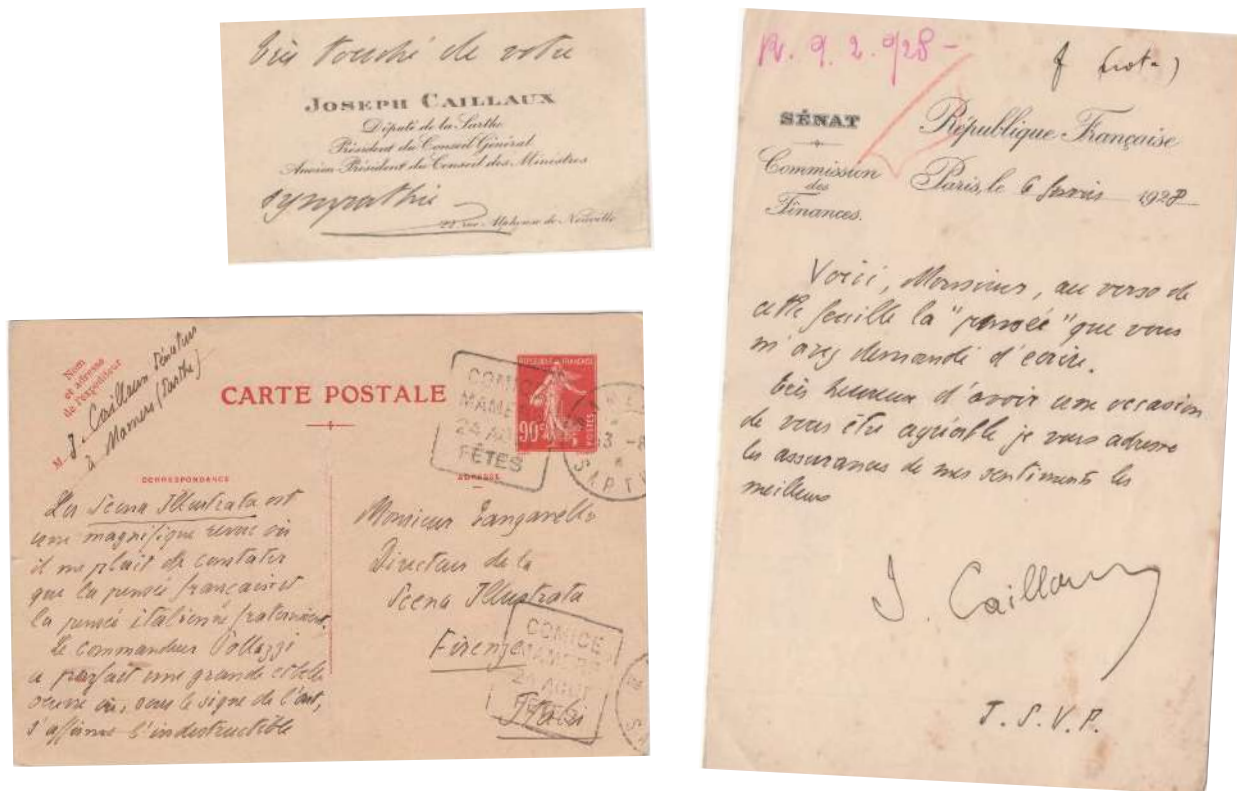 très touché de votre
JOSEPH CAILLAUX
Député de la Sarthe
Président du Conseil Général
Ancien Président du Conseil des Ministres
sympathie
22 rue Alphonse de Neuville
Nom
et adresse
de l'expéditeur
M. J. Caillaux Sénateur
à Mamers (Sarthe)
CARTE POSTALE
COMICE
MAMERS
24 AOUT
FÊTES
REPUBLIQUE FRANÇAISE
90c
POSTES
CORRESPONDANCE
La Scena Illustrata est
une magnifique revue où
il me plait de constater
que la pensée française et
la pensée italienne fraternisent.
Le commandeur Pollazzi
a parfait une grande et belle
œuvre où, sous le signe de l'art,
s'affirme l'indestructible
ADRESSE
Monsieur
Directeur de la
Scena Illustrata
Firenze
Italie
COMICE
MAMERS
24 AOUT
FÊTES
R. 9. 2. 928 -
f (nota)
SÉNAT
Commission
des
Finances.
République Française
Paris, le 6 février 1928
Voici, Monsieur, au verso de
cette feuille la "pensée" que vous
m'avez demandé d'écrire.
très heureux d'avoir une occasion
de vous être agréable je vous adresse
les assurances de mes sentiments les
meilleurs
J. Caillaux
T. S. V. P.